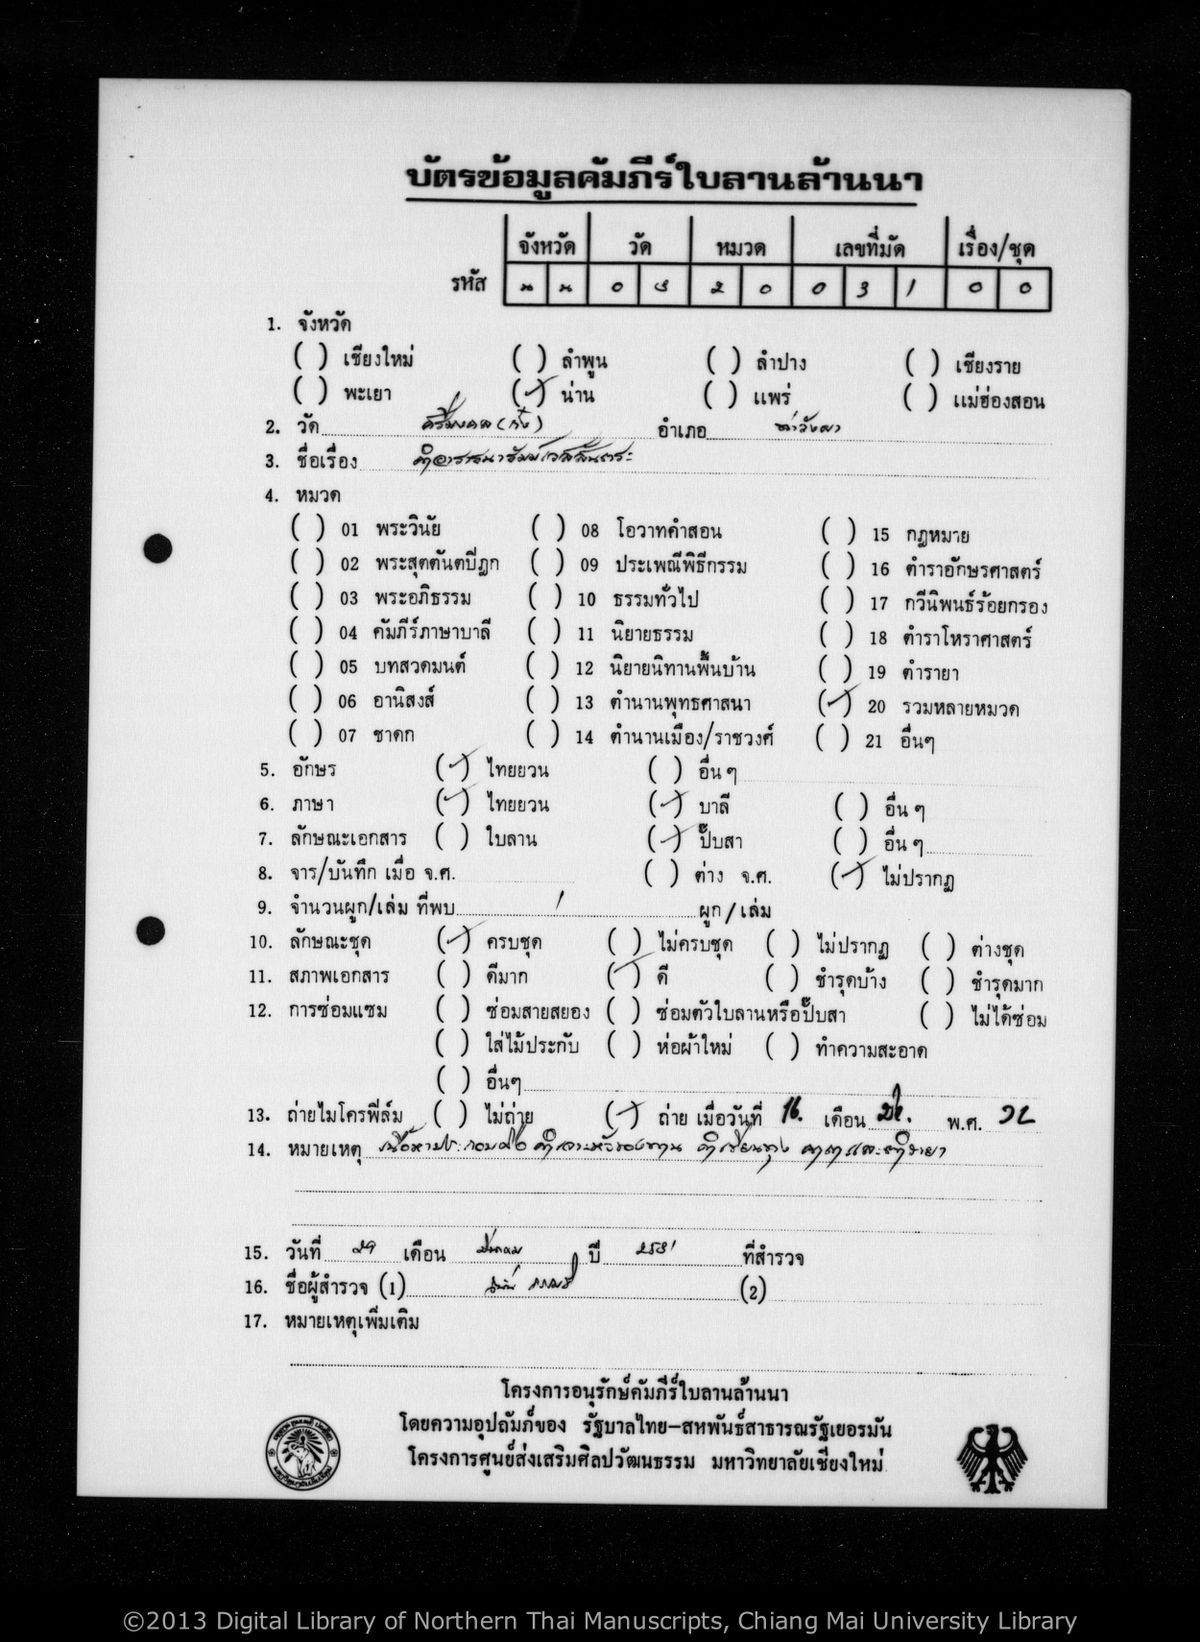 บัตรข้อมูลคัมภีร์ใบลานล้านนา
จังหวัด วัด หมวด เลขที่มัด เรื่อง/ชุด
รหัส น น 0 2 0 0 3 1 0 0
1. จังหวัด
( ) เชียงใหม่ ( ) ลำพูน ( ) ลำปาง ( ) เชียงราย
( ) พะเยา (✓) น่าน ( ) แพร่ ( ) แม่ฮ่องสอน
2. วัด ศรีมงคล (ก๋ง) อำเภอ ท่าวังผา
3. ชื่อเรื่อง คำอาราธนาธัมม์เวสสันตระ
4. หมวด
( ) 01 พระวินัย ( ) 08 โอวาทคำสอน ( ) 15 กฎหมาย
( ) 02 พระสุตตันตปีฎก ( ) 09 ประเพณีพิธีกรรม ( ) 16 ตำราอักษรศาสตร์
( ) 03 พระอภิธรรม ( ) 10 ธรรมทั่วไป ( ) 17 กวีนิพนธ์ร้อยกรอง
( ) 04 คัมภีร์ภาษาบาลี ( ) 11 นิยายธรรม ( ) 18 ตำราโหราศาสตร์
( ) 05 บทสวดมนต์ ( ) 12 นิยายนิทานพื้นบ้าน ( ) 19 ตำรายา
( ) 06 อานิสงส์ ( ) 13 ตำนานพุทธศาสนา (✓) 20 รวมหลายหมวด
( ) 07 ชาดก ( ) 14 ตำนานเมือง/ราชวงศ์ ( ) 21 อื่นๆ
5. อักษร (✓) ไทยยวน ( ) อื่น ๆ
6. ภาษา (✓) ไทยยวน (✓) บาลี ( ) อื่น ๆ
7. ลักษณะเอกสาร ( ) ใบลาน (✓) ปั๊บสา ( ) อื่น ๆ
8. จาร/บันทึก เมื่อ จ.ศ. ( ) ต่าง จ.ศ. (✓) ไม่ปรากฏ
9. จำนวนผูก/เล่ม ที่พบ 1 ผูก/เล่ม
10. ลักษณะชุด (✓) ครบชุด ( ) ไม่ครบชุด ( ) ไม่ปรากฏ ( ) ต่างชุด
11. สภาพเอกสาร ( ) ดีมาก (✓) ดี ( ) ชำรุดบ้าง ( ) ชำรุดมาก
12. การซ่อมแซม ( ) ซ่อมสายสยอง ( ) ซ่อมตัวใบลานหรือปั๊บสา ( ) ไม่ได้ซ่อม
( ) ใส่ไม้ประกับ ( ) ห่อผ้าใหม่ ( ) ทำความสะอาด
( ) อื่นๆ
13. ถ่ายไมโครฟิล์ม ( ) ไม่ถ่าย (✓) ถ่าย เมื่อวันที่ 16. เดือน พ.ศ. 32
14. หมายเหตุ เนื้อหาประกอบด้วย คำ คาถาและตำรายา
15. วันที่ 29 เดือน มีนาคม ปี 2531 ที่สำรวจ
16. ชื่อผู้สำรวจ (1) (2)
17. หมายเหตุเพิ่มเติม
โครงการอนุรักษ์คัมภีร์ใบลานล้านนา
โดยความอุปถัมภ์ของ รัฐบาลไทย-สหพันธ์สาธารณรัฐเยอรมัน
โครงการศูนย์ส่งเสริมศิลปวัฒนธรรม มหาวิทยาลัยเชียงใหม่
©2013 Digital Library of Northern Thai Manuscripts, Chiang Mai University Library